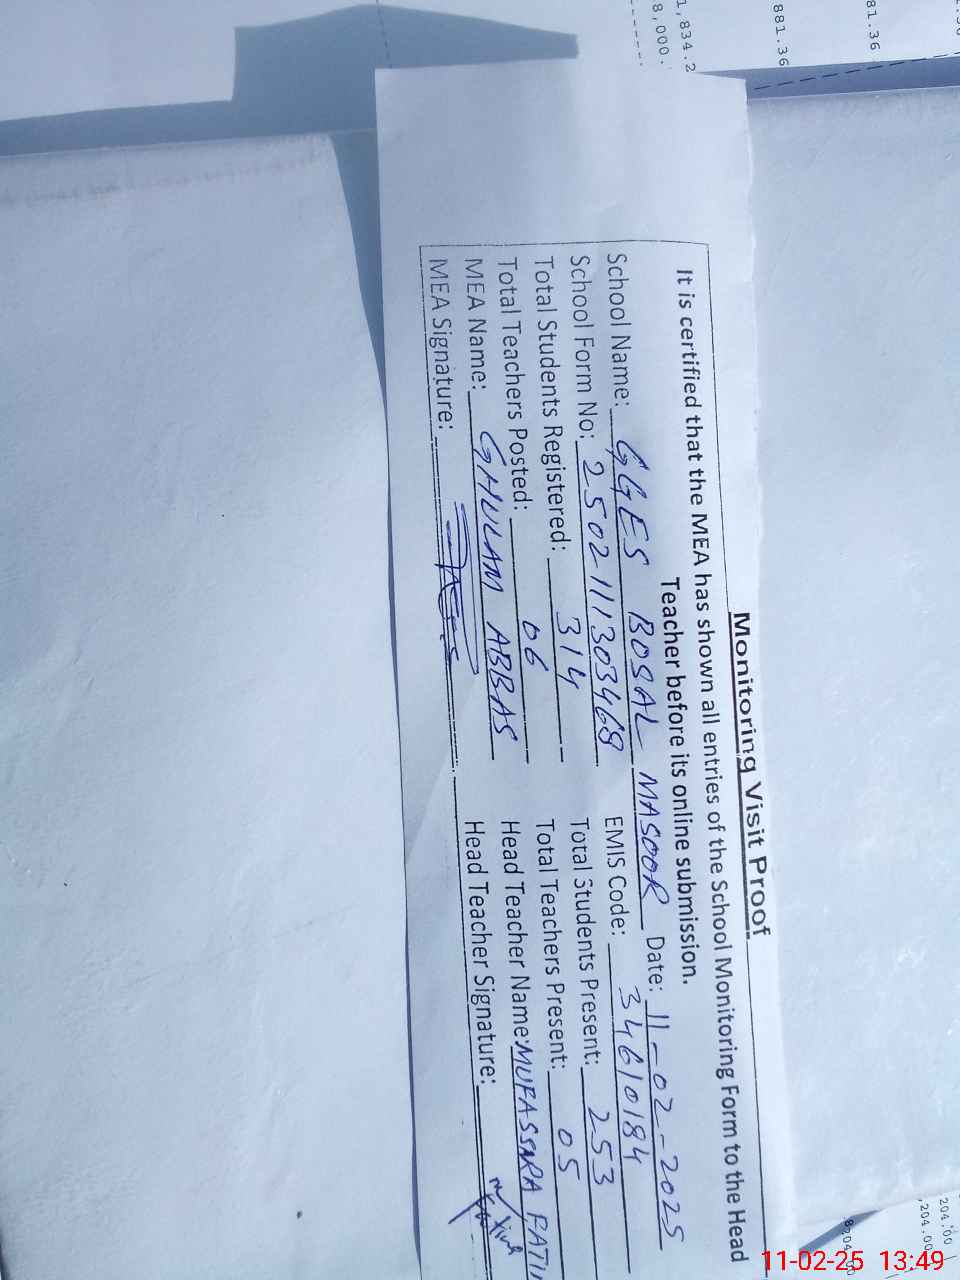 Monitoring Visit Proof
It is certified that the MEA has shown all entries of the School Monitoring Form to the Head
Teacher before its online submission.
School Name: GGES BOSAL MASOOR Date: 11-02-2025
School Form No: 2502111303468 EMIS Code: 34610184
Total Students Registered: 314 Total Students Present: 253
Total Teachers Posted: 06 Total Teachers Present: 05
MEA Name: GHULAM ABBAS Head Teacher Name: MUFASSARA FATI
MEA Signature: Head Teacher Signature:
1,834.2
8,000.
881.36
81.36
204.00
,204.00
11-02-25 13:49